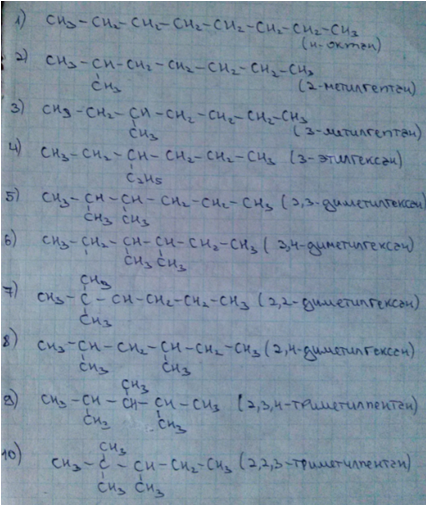 1) CH₃-CH₂-CH₂-CH₂-CH₂-CH₂-CH₂-CH₃
(н-октан)
2) CH₃-CH-CH₂-CH₂-CH₂-CH₂-CH₃
CH₃ (2-метилгептан)
3) CH₃-CH₂-CH-CH₂-CH₂-CH₂-CH₃
CH₃ (3-метилгептан)
4) CH₃-CH₂-CH-CH₂-CH₂-CH₃ (3-этилгексан)
C₂H₅
5) CH₃-CH-CH-CH₂-CH₂-CH₃ (2,3-диметилгексан)
CH₃ CH₃
6) CH₃-CH₂-CH-CH-CH₂-CH₃ (3,4-диметилгексан)
CH₃ CH₃
CH₃
7) CH₃-C-CH-CH₂-CH₂-CH₃ (2,2-диметилгексан)
CH₃
8) CH₃-CH-CH₂-CH-CH₂-CH₃ (2,4-диметилгексан)
CH₃ CH₃
CH₃
9) CH₃-CH-CH-CH-CH₃ (2,3,4-триметилпентан)
CH₃ CH₃
CH₃
10) CH₃-C-CH-CH₂-CH₃ (2,2,3-триметилпентан)
CH₃ CH₃